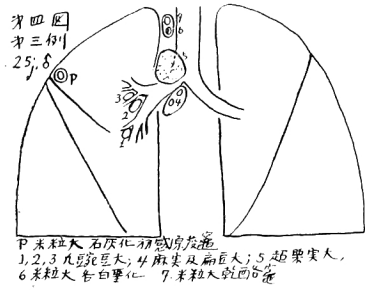 第四図
第三例
25j. ♂
P
7
6
5
3
2
1
04
P 米粒大石灰化初感原発竈
1, 2, 3 丸豌豆大; 4 麻実及扁豆大; 5 超栗実大,
6 米粒大 白堊化 7. 米粒大乾酪竈